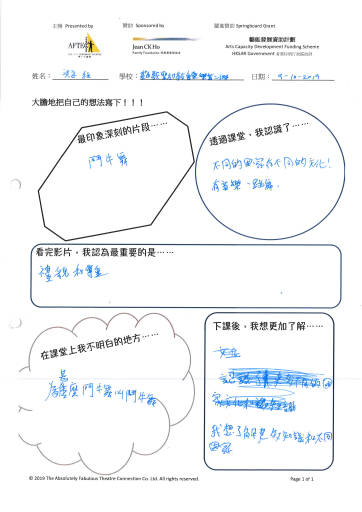 主辦 Presented by
贊助 Sponsored by
躍進資助 Springboard Grant
APTEC
Jean CK Ho
Family Foundation
藝能發展資助計劃
Arts Capacity Development Funding Scheme
HKSAR Government
姓名：
學校：
日期： 9-10-2019
大膽地把自己的想法寫下！！！
最印象深刻的片段……
鬥牛舞
透過課堂，我認識了……
不同的國家有不同的文化！
有音樂、跳舞．
看完影片，我認為最重要的是……
禮貌和尊重
在課堂上我不明白的地方……
為甚麼鬥牛舞叫鬥牛舞
下課後，我想更加了解……
我想了解更多知識和不同
國家
© 2019 The Absolutely Fabulous Theatre Connection Co. Ltd. All rights reserved.
Page 1 of 1